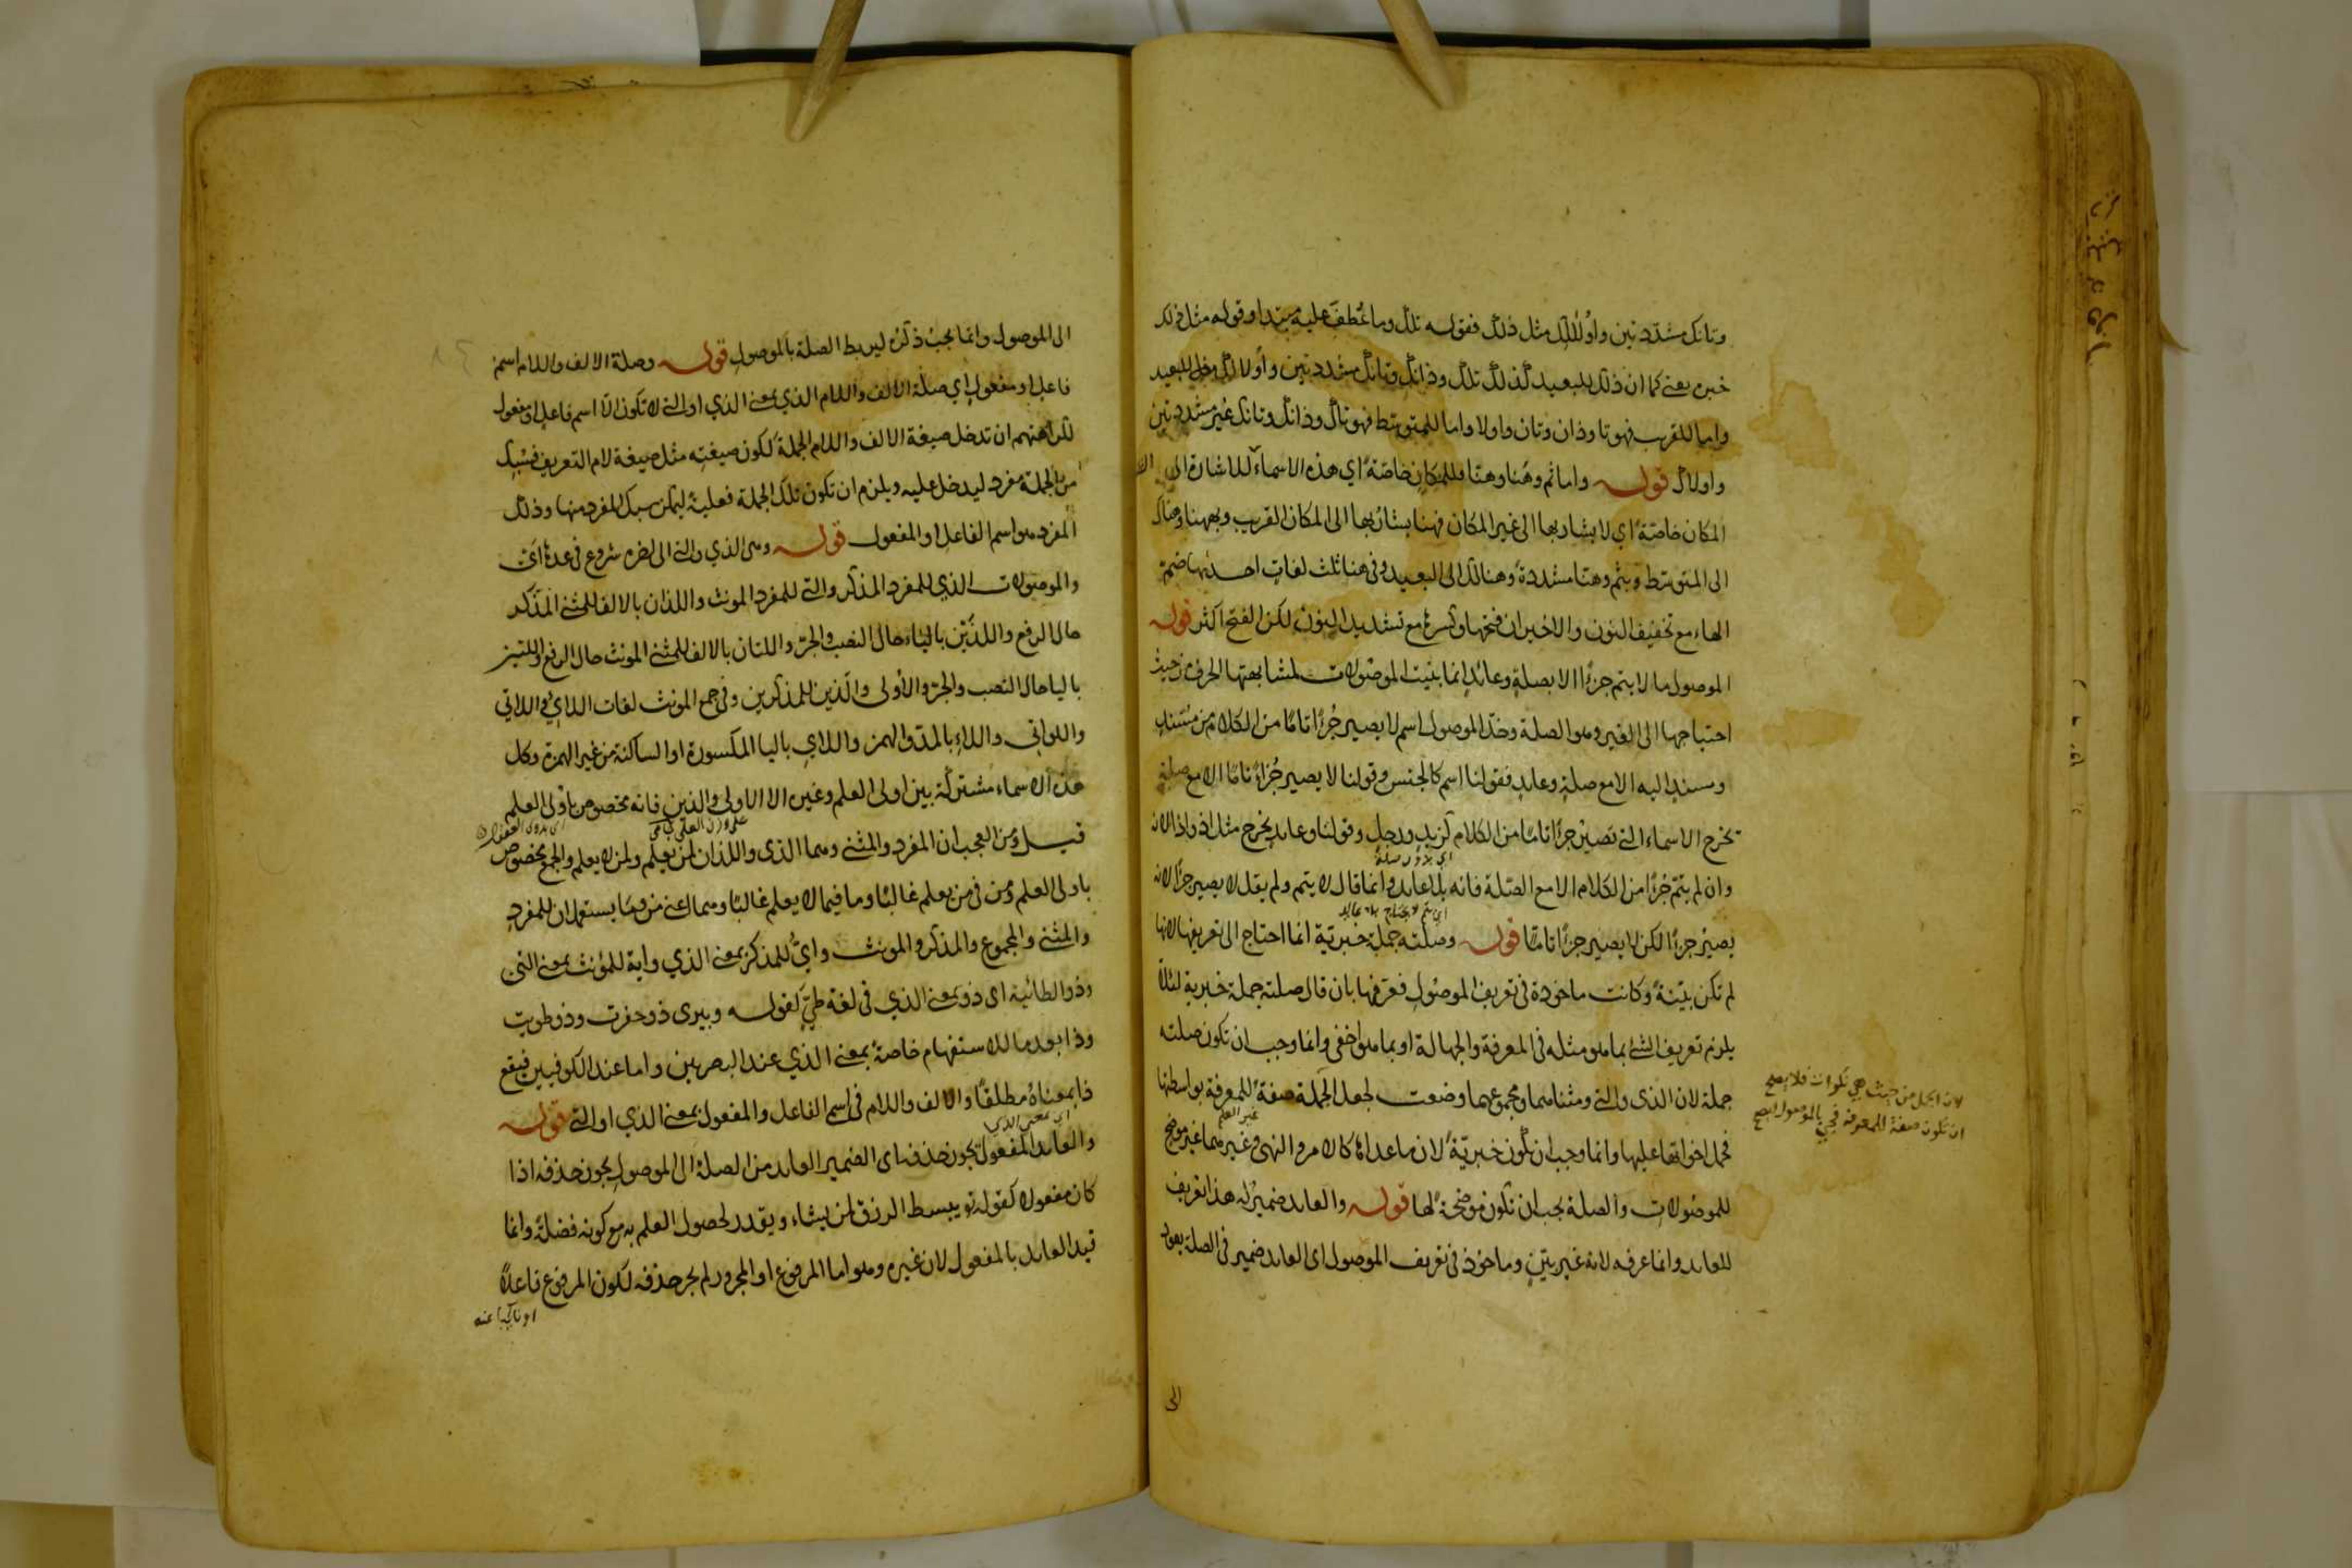 وتانك مشددتين واولالك مثل ذلك فقوله تلك وما عُطف عليه مبتدا وقوله مثل ذلك
خبره يعني كما ان ذلك للبعيد كذلك تلك وذانك وتانك مشددتين واولالك للبعيد
واما للقريب فهو تا وذان وتان واولا واما للمتوسط فهو تاك وذانك وتانك غير مشددتين
واولاك قوله واما ثم وهُنا وهنّا فللمكان خاصّة اي هذه الاسماء للاشارة الى
المكان خاصّة اي لا يشار بها الى غير المكان فهنا يشار بها الى المكان القريب وبههنا وهناك
الى المتوسط وبثم وهنّا مشددة وهنالك الى البعيد وفي هنا ثلث لغات احديها ضم
الهاء مع تخفيف النون والاخيران فتحها وكسرها مع تشديد النون لكن الفتح اكثر قوله
الموصول ما لا يتم جزءًا الا بصلةٍ وعائدٍ انما بنيت الموصولات لمشابهتها الحرف من حيث
احتياجها الى الغير وهو الصلة وحدّ الموصول اسم لا يصير جُزءًا تامًا من الكلام من مُسندٍ
ومسندٍ اليه الا مع صلةٍ وعايدٍ فقولنا اسم كالجنس وقولنا لا يصير جُزءًا تامًا الا مع صلة
تخرج الاسماء التي تصير جزءًا تامًا من الكلام كزيدٍ ورجلٍ وقولنا وعايدٍ يخرج مثل اذ واذا لانه
وان لم يتمّ جُزءًا من الكلام الا مع الصّلة فانه بلا عايدٍ وانما قال لا يتم ولم يقل لا يصير جزءًا لانه
يصير جزءًا لكن لا يصير جزءًا تامًا قوله وصلته جملة خبريّة انما احتاج الى تعريفها لانها
لم تكن بيّنةً وكانت ماخوذة في تعريف الموصول فعرفها بان قال صلته جملة خبرية لئلا
يلزم تعريف الشئ بما هو مثله في المعرفة والجهالة او بما هو اخفى وانما وجب ان تكون صلته
جملة لان الذي والتي ومثناهما ومجموعهما وضعت لجعل الجملة صفةً للمعرفة بواسطتها
فحمل اخواتها عليها وانما وجب ان تكون خبريّةً لان ما عداها كالامر والنهي وغيرهما غير موضح
للموصولات والصلة يجب ان تكون موضحةً لها قوله والعايد ضميرٌ له هذا تعريف
للعايد وانما عرفه لانه غير بيّنٍ وماخوذ في تعريف الموصول اى العايد ضمير في الصلة يعود
لان الجمل من حيث هي نكرات فلا يصح
ان تكون صفة للمعرفة فجيئ بالموصول ليصح
الى
الى الموصول وانما يجب ذكره ليربط الصلة بالموصول قوله وصلة الالف واللام اسم
فاعل او مفعولٍ اي صلة الالف واللام الذي بمعنى الذي او التي لا تكون الّا اسم فاعل او مفعول
لكراهتهم ان تدخل صيغة الالف واللام الجملة لكون صيغته مثل صيغة لام التعريف فسُبك
من الجملة مفرد ليدخل عليه ويلزم ان تكون تلك الجملة فعلية ليمكن سبك المفرد منها وذلك
المفرد هو اسم الفاعل او المفعول قوله وهي الذي والتي الى اخره شروع في عدها اى
والموصولات الذي للمفرد المذكر والتي للمفرد المونث واللذان بالالف للمثنى المذكر
حال الرفع واللذَيْن بالياء حال النصب والجرّ واللتان بالالف للمثنى المونث حال الرفع واللتين
باليا حال النصب والجرّ والأولى والّذين للمذكرين وفي جمع المونث لغات اللائي واللاتي
واللواتي واللاءِ بالمدّ والهمز واللاي باليا المكسورة او الساكنة من غير الهمزة وكل
هذه الاسماء مشتركة بين اولى العلم وغيره الا الاولى والذين فانه مخصوص باولى العلم
قيل ومن العجب ان المفرد والمثنى وهما الذي واللذان لمن يعلم ولمن لا يعلم والجمع مخصوص
باولى العلم ومن في من يعلم غالبًا وما فيما لا يعلم غالبًا وهما اعني من وما يستعملان للمفرد
والمثنى والمجموع والمذكر والمونث وايٌّ للمذكر بمعنى الذي واية للمؤنث بمعنى التي
وذو الطائية اى ذو بمعنى الذي في لغة طيّ كقوله وبيرى ذو حفرت وذو طويت
وذا بعد ما للاستفهام خاصةً بمعنى الذي عند البصريين واما عند الكوفيين فيقع
ذا بمعناهُ مطلقًا والالف واللام في اسم الفاعل والمفعول بمعنى الذي او التي قوله
والعايد المفعول يجوز حذفه اى الضمير العايد من الصلة الى الموصول يجوز حذفه اذا
كان مفعولا كقوله تع يبسط الرزق لمن يشاء ويقدر لحصول العلم به مع كونه فضلةً وانما
قيد العايد بالمفعول لان غيره وهو اما المرفوع او المجرور لم يجز حذفه لكون المرفوع فاعلاً